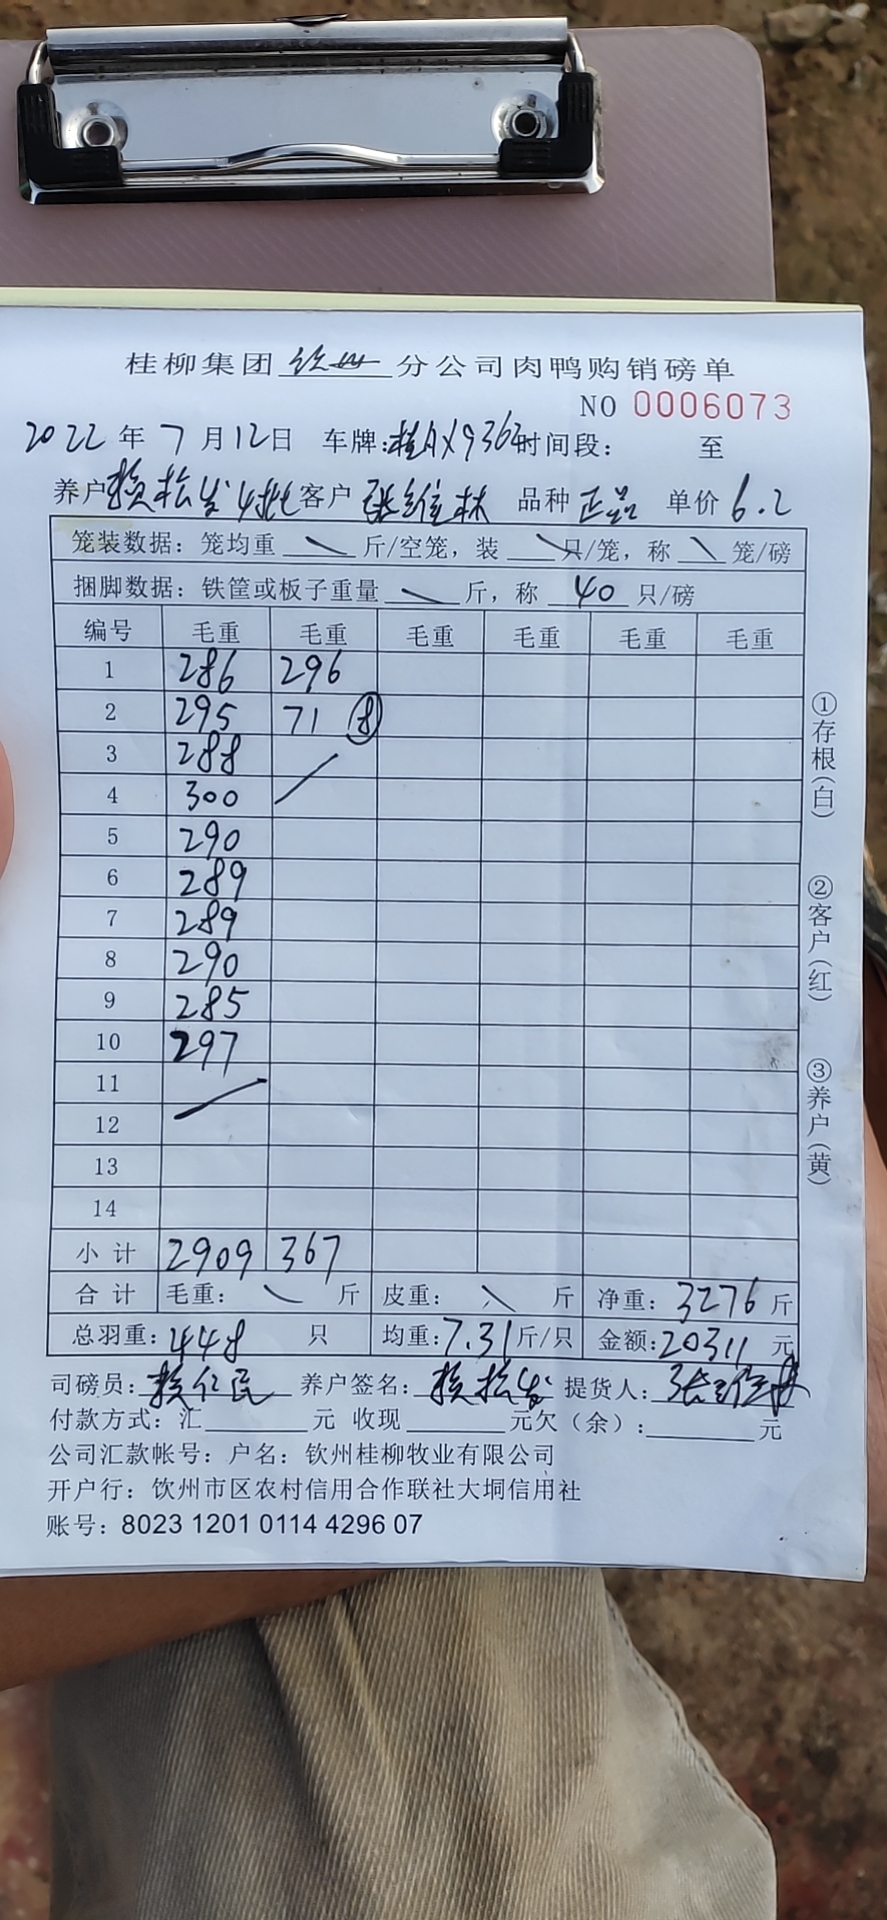 桂柳集团 钦州 分公司肉鸭购销磅单
NO 0006073
2022 年 7 月 12 日 车牌:桂AX9362 时间段: 至
养户 赖松发 4批 客户 张维林 品种 正品 单价 6.2
笼装数据：笼均重 \ 斤/空笼，装 \ 只/笼，称 \ 笼/磅
捆脚数据：铁筐或板子重量 \ 斤，称 40 只/磅
编号 毛重 毛重 毛重 毛重 毛重 毛重
1 286 296
2 295 71 ⑧
3 288
4 300
5 290
6 289
7 289
8 290
9 285
10 297
11
12
13
14
小计 2909 367
合计 毛重: \ 斤 皮重: \ 斤 净重: 3276 斤
总羽重: 448 只 均重: 7.31 斤/只 金额: 20311 元
司磅员: 赖仁民 养户签名: 赖松发 提货人: 张维林
付款方式: 汇 元 收现 元欠（余）: 元
公司汇款帐号：户名：钦州桂柳牧业有限公司
开户行：饮州市区农村信用合作联社大垌信用社
账号：8023 1201 0114 4296 07
①存根(白)
②客户(红)
③养户(黄)